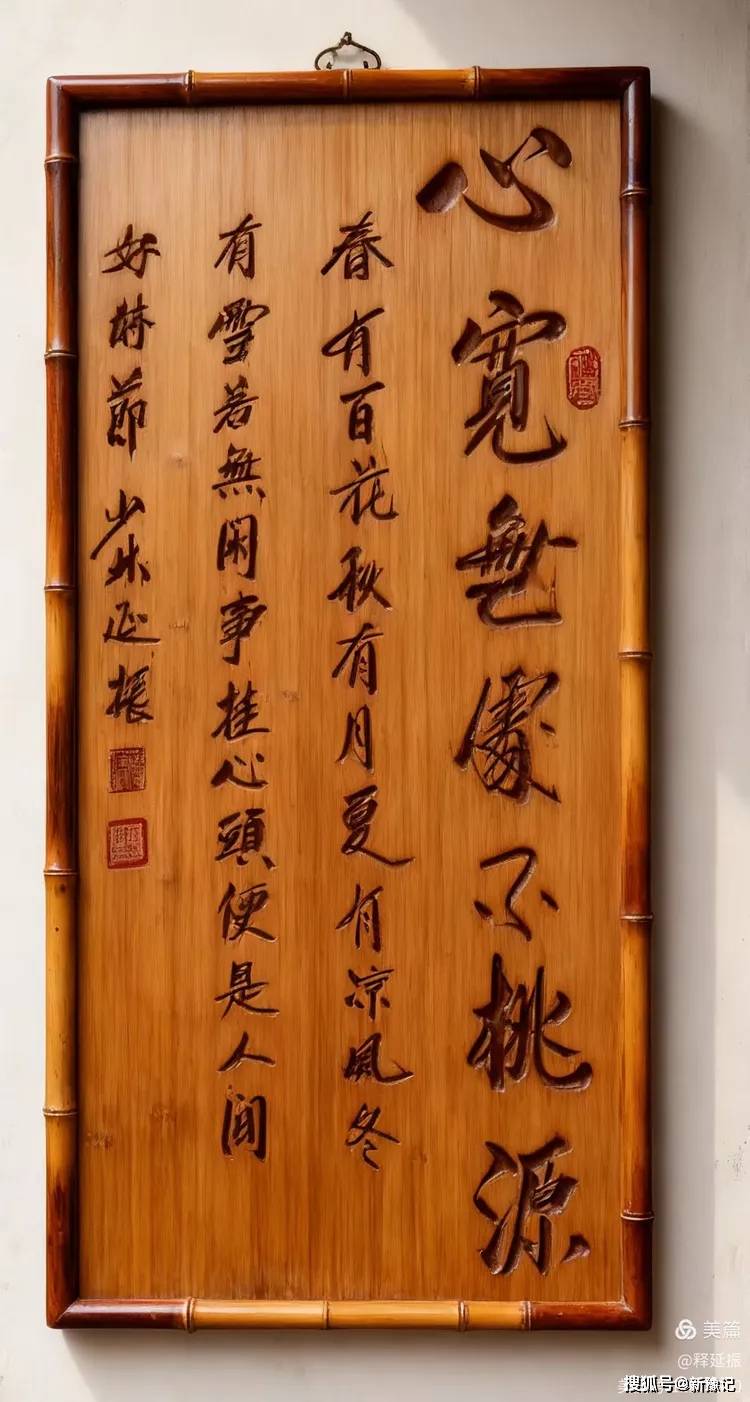 心寬無處不桃源
春有百花秋有月夏有凉風冬
有雪若無闲事挂心頭便是人間
好時節 少林延振
美篇
@释延振
搜狐号@新豫记